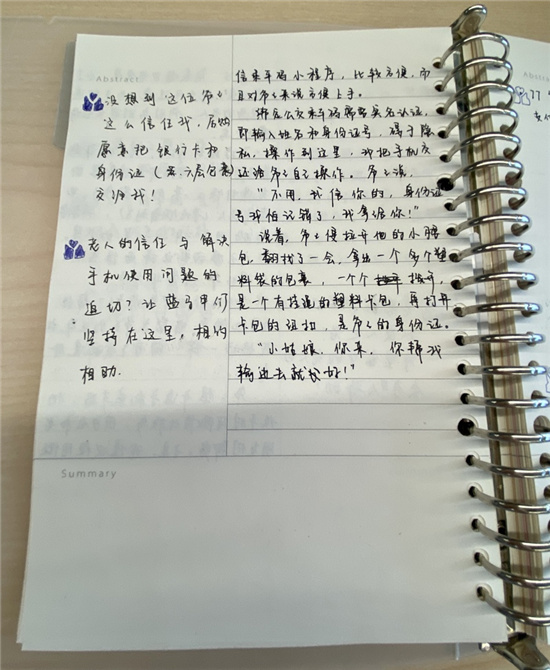 Abstract
没想到这位爷爷
这么信任我，后续
愿意把银行卡和
身份证（
交给我！
老人的信任与解决
手机使用问题的
迫切？让蓝马甲们
坚持在这里，相约
相助.
信乘车码小程序，比较方便，而
且对爷爷来说方便上手。
绑定公交乘车码需要实名认证，
即输入姓名和身份证号，碍于隐
私，操作到这里，我把手机交
还给爷爷自己操作，爷爷说，
“不用，我信你的，身份证
号我怕记错了，我拿给你！”
说着，爷爷慢拉开他的小腰
包，翻找了一会，拿出一个多个塑
料袋的包裹，一个个拨开，
是一个有挂绳的塑料卡包，再打开
卡包的纽扣，是爷爷的身份证。
“小姑娘，你来，你帮我
输进去就好！”
Summary